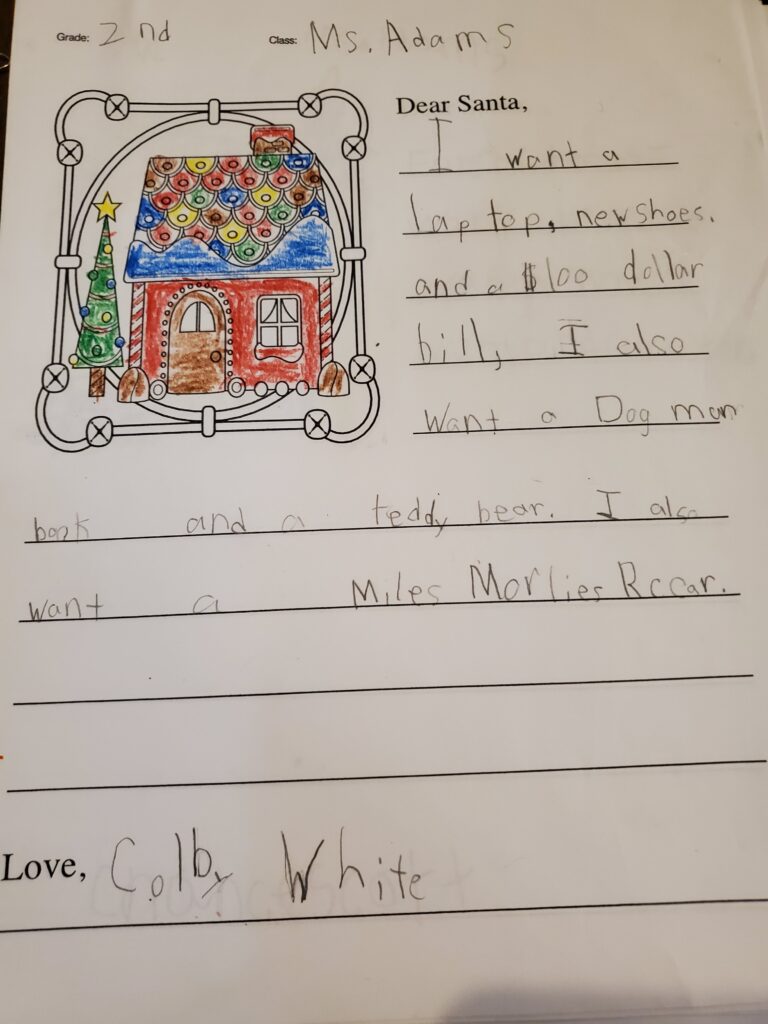 Grade: 2nd Class: Ms. Adams
Dear Santa,
I want a
laptop, new shoes.
and a $100 dollar
bill, I also
want a Dog man
book and a teddy bear. I also
want a Miles Morlies Rccar.
Love, Colby White